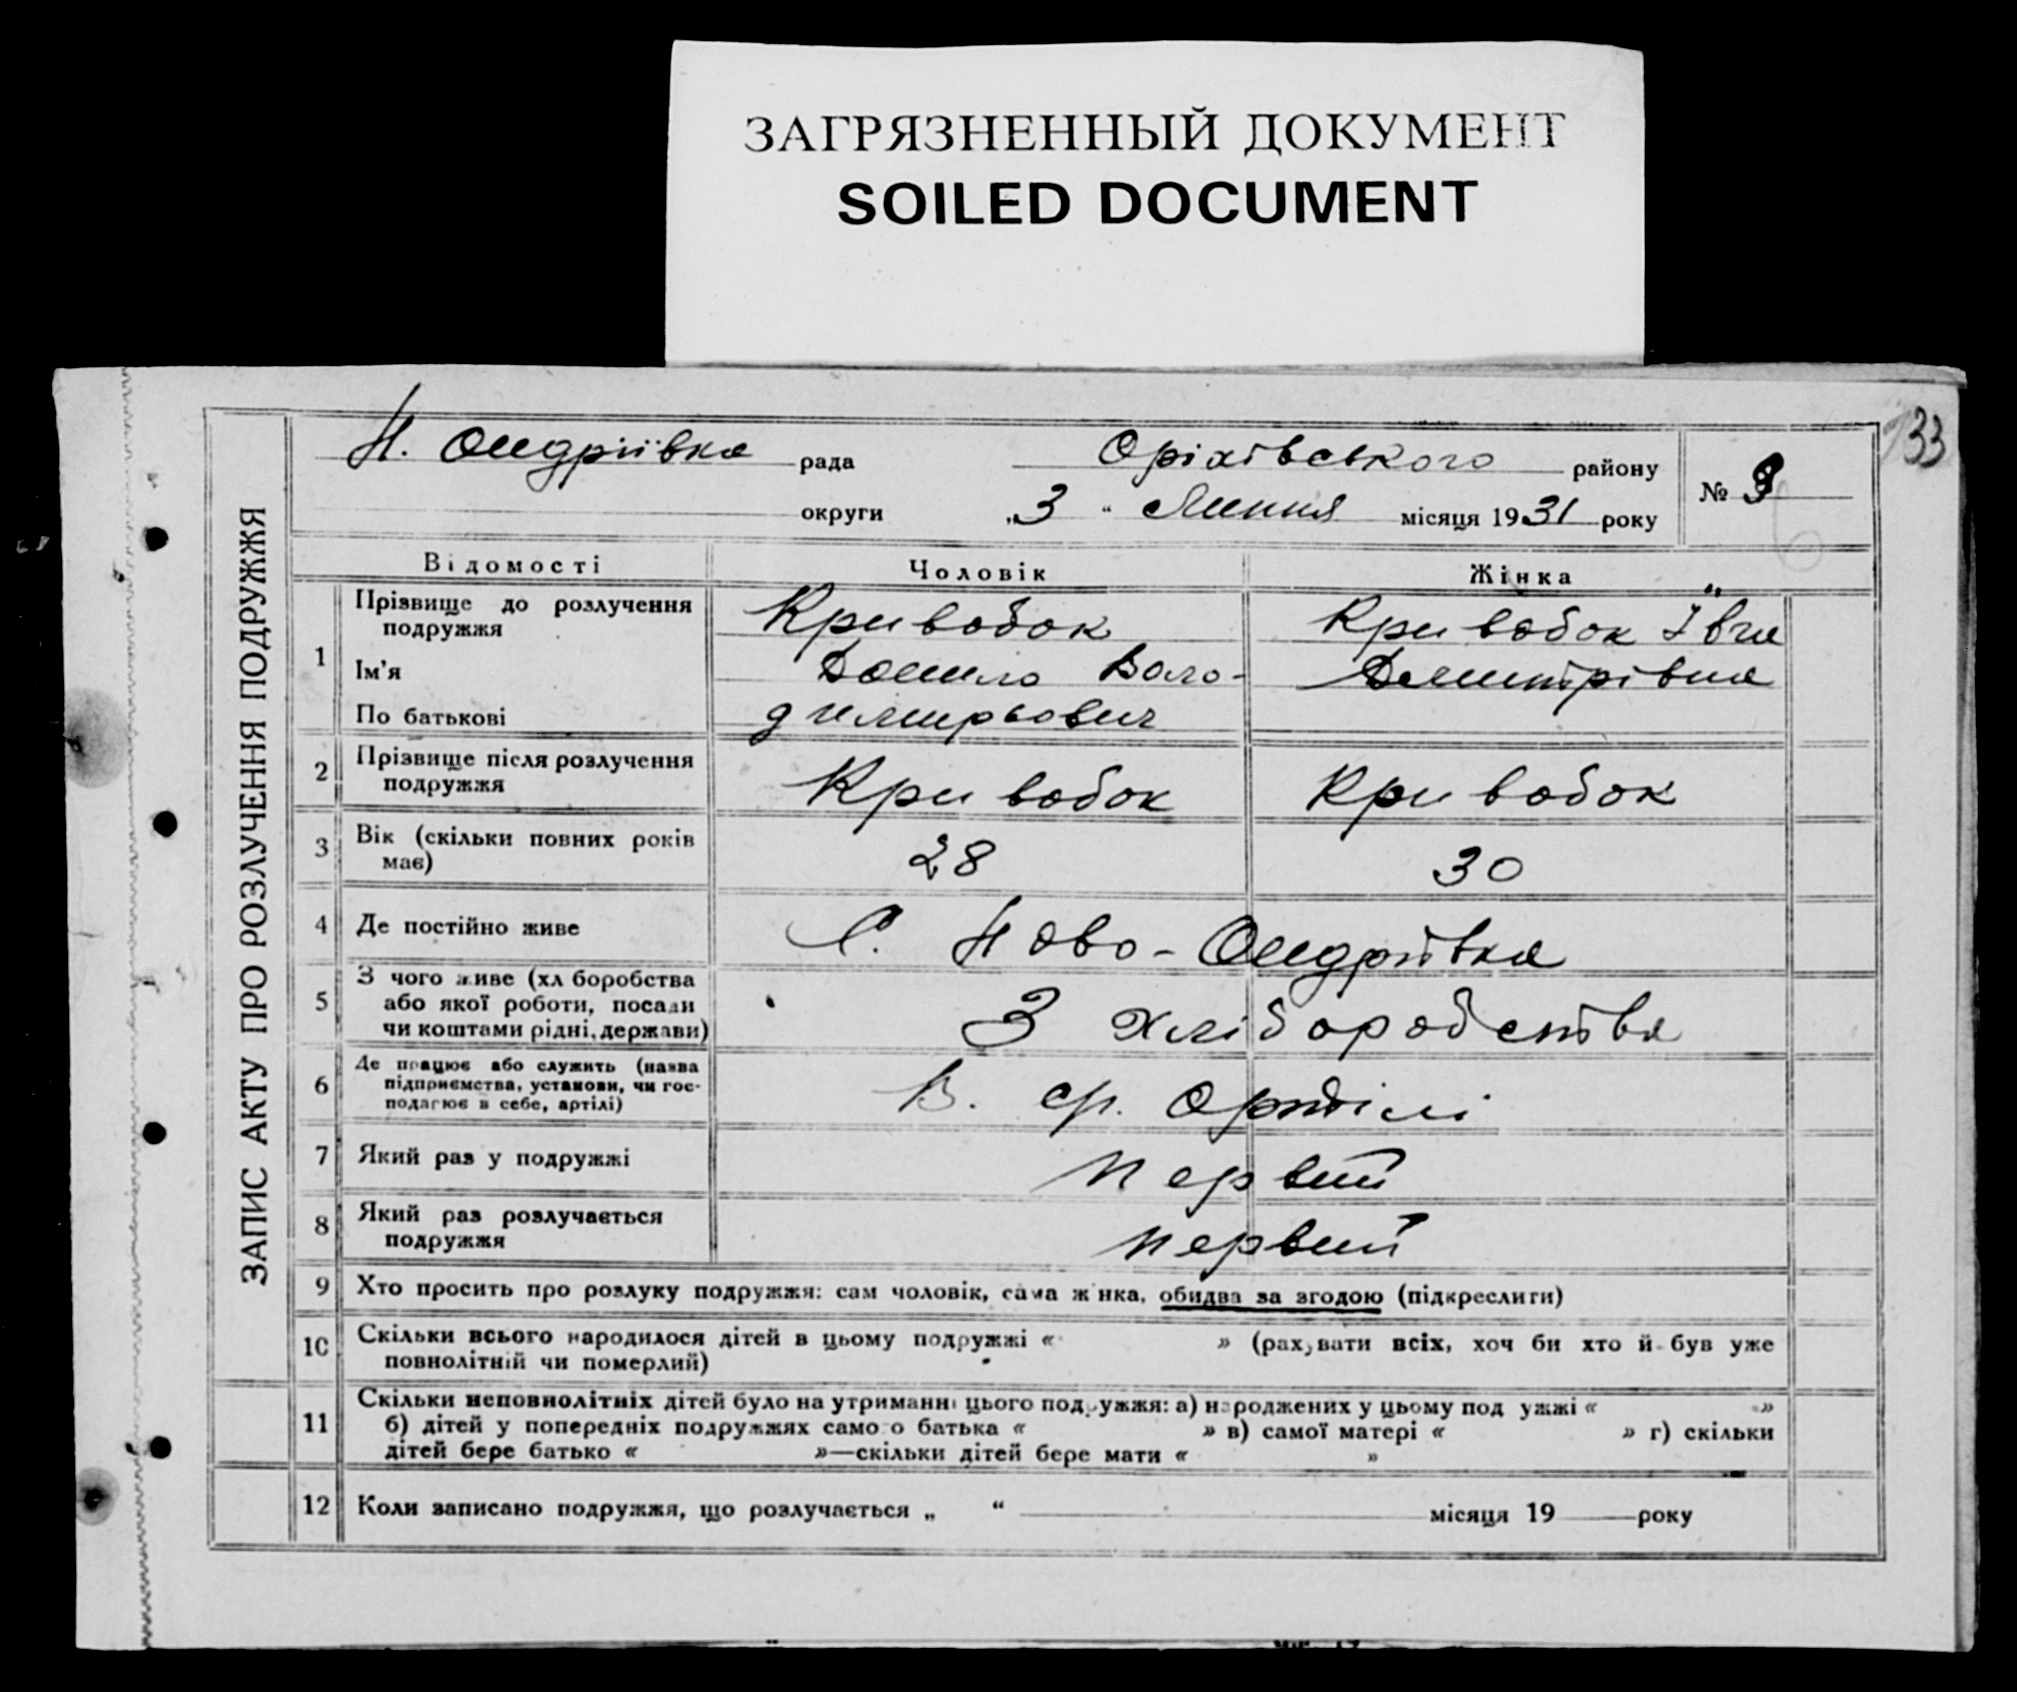 ЗАГРЯЗНЕННЫЙ ДОКУМЕНТ
SOILED DOCUMENT
33
Н. Андріївка рада Оріхівського району
округи „3“ Липня місяця 1931 року
№
ЗАПИС АКТУ ПРО РОЗЛУЧЕННЯ ПОДРУЖЖЯ
Відомості Чоловік Жінка
1 Прізвище до розлучення подружжя Кривобок Кривобок Ївга
Ім'я Данило Воло- Дмитрівна
По батькові димирьович
2 Прізвище після розлучення подружжя Кривобок Кривобок
3 Вік (скільки повних років має) 28 30
4 Де постійно живе С. Ново-Андріївка
5 З чого живе (хліборобства
або якої роботи, посади
чи коштами рідні, держави) З хліборобства
6 Де працює або служить (назва
підприємства, установи, чи гос-
подарює в себе, артілі) В. ср. Артілі
7 Який раз у подружжі Первий
8 Який раз розлучається
подружжя Первий
9 Хто просить про розлуку подружжя: сам чоловік, сама жінка, обидва за згодою (підкреслити)
10 Скільки всього народилося дітей в цьому подружжі « » (рахувати всіх, хоч би хто й був уже
повнолітній чи померлий)
11 Скільки неповнолітніх дітей було на утриманні цього подружжя: а) народжених у цьому подружжі « »
б) дітей у попередніх подружжях самого батька « » в) самої матері « » г) скільки
дітей бере батько « »—скільки дітей бере мати « »
12 Коли записано подружжя, що розлучається „ “ місяця 19 року